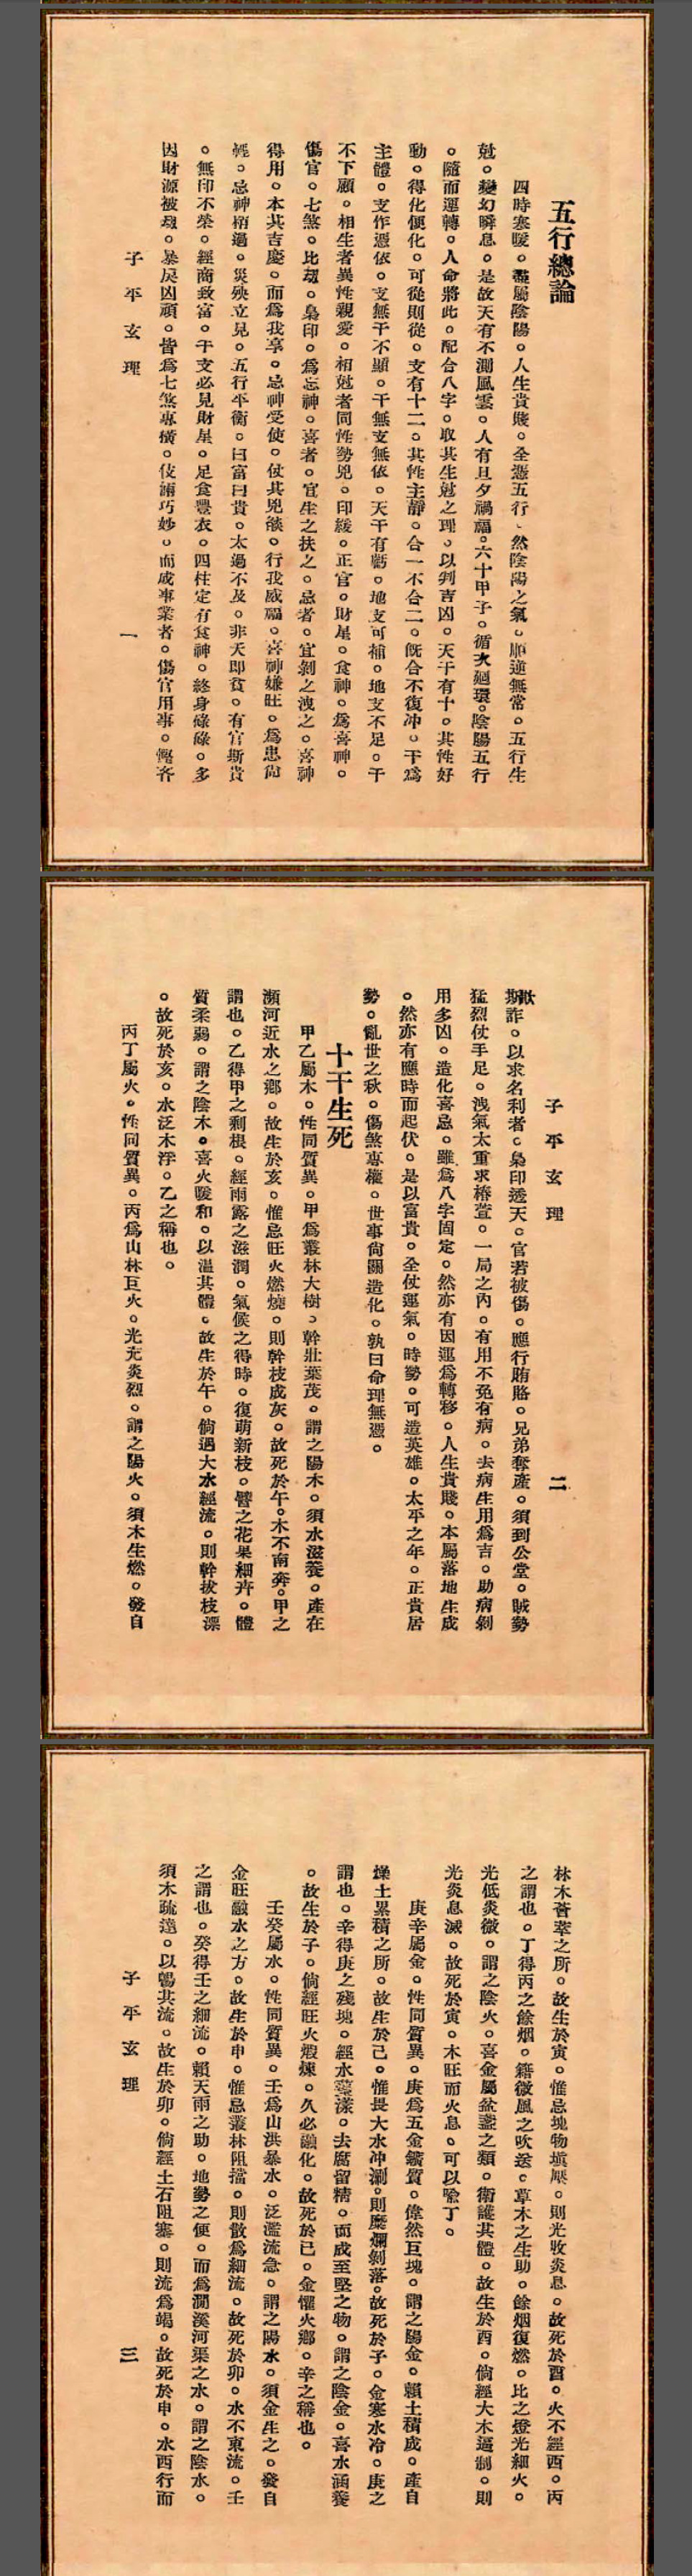 五行總論
四時寒暖。盡屬陰陽。人生貴賤。全憑五行、然陰陽之氣。順逆無常。五行生
尅。變幻瞬息。是故天有不測風雲。人有旦夕禍福。六十甲子。循次廻環。陰陽五行
。隨而運轉。人命將此。配合八字。取其生尅之理。以判吉凶。天干有十。其性好
動。得化便化。可從則從。支有十二。其性主靜。合一不合二。旣合不復冲。干爲
主體。支作憑依。支無干不顯。干無支無依。天干有虧。地支可補。地支不足。干
不下顧。相生者異性親愛。相尅者同性勢兇。印綬。正官。財星。食神。爲喜神。
傷官。七煞。比刼。梟印。爲忘神。喜者。宜生之扶之。忌者。宜剝之洩之。喜神
得用。本其吉慶。而爲我享。忌神受使。仗其兇燄。行我威福。喜神嫌旺。爲患尙
輕。忌神稍過。災殃立見。五行平衡。曰富曰貴。太過不及。非夭即貧。有官斯貴
。無印不榮。經商致富。干支必見財星。足食豐衣。四柱定有食神。終身碌碌。多
因財源被刼。暴戾凶頑。皆爲七煞專橫。伎藝巧妙。而成事業者。傷官用事。慳吝
子平玄理
一
子平玄理
二
欺詐。以求名利者。梟印透天。官若被傷。應行賄賂。兄弟奪產。須到公堂。賊勢
猛烈仗手足。洩氣太重求椿萱。一局之內。有用不免有病。去病生用爲吉。助病剝
用多凶。造化喜忌。雖爲八字固定。然亦有因運爲轉移。人生貴賤。本屬落地生成
。然亦有應時而起伏。是以富貴。全仗運氣。時勢。可造英雄。太平之年。正貴居
勢。亂世之秋。傷煞專權。世事尙關造化。孰曰命理無憑。
十干生死
甲乙屬木。性同質異。甲爲叢林大樹。幹壯葉茂。謂之陽木。須水滋養。產在
瀕河近水之鄕。故生於亥。惟忌旺火燃燒。則幹枝成灰。故死於午。木不南奔。甲之
謂也。乙得甲之剩根。經雨露之滋潤。氣候之得時。復萌新枝。譬之花果細卉。體
質柔弱。謂之陰木。喜火暖和。以溫其體。故生於午。倘遇大水經流。則幹拔枝漂
。故死於亥。水泛木浮。乙之稱也。
丙丁屬火。性同質異。丙爲山林巨火。光充炎烈。謂之陽火。須木生燃。發自
林木薈萃之所。故生於寅。惟忌塊物塡壓。則光收炎息。故死於酉。火不經西。丙
之謂也。丁得丙之餘烟。籍微風之吹送。草木之生助。餘烟復燃。比之燈光細火。
光低炎微。謂之陰火。喜金屬盆盞之類。衛護其體。故生於酉。倘經大木逼制。則
光炎息滅。故死於寅。木旺而火息。可以喩丁。
庚辛屬金。性同質異。庚爲五金鑛質。偉然巨塊。謂之陽金。賴土積成。產自
燥土累積之所。故生於己。惟畏大水冲涮。則糜爛剝落。故死於子。金寒水冷。庚之
謂也。辛得庚之殘塊。經水蕩漾。去腐留精。而成至堅之物。謂之陰金。喜水涵養
。故生於子。倘經旺火煆煉。久必融化。故死於已。金懼火鄕。辛之稱也。
壬癸屬水。性同質異。壬爲山洪暴水。泛濫流急。謂之陽水。須金生之。發自
金旺融水之方。故生於申。惟忌叢林阻擋。則散爲細流。故死於卯。水不東流。壬
之謂也。癸得壬之細流。賴天雨之助。地勢之便。而爲澗溪河渠之水。謂之陰水。
須木疏達。以暢其流。故生於卯。倘經土石阻塞。則流爲竭。故死於申。水西行而
子平玄理
三